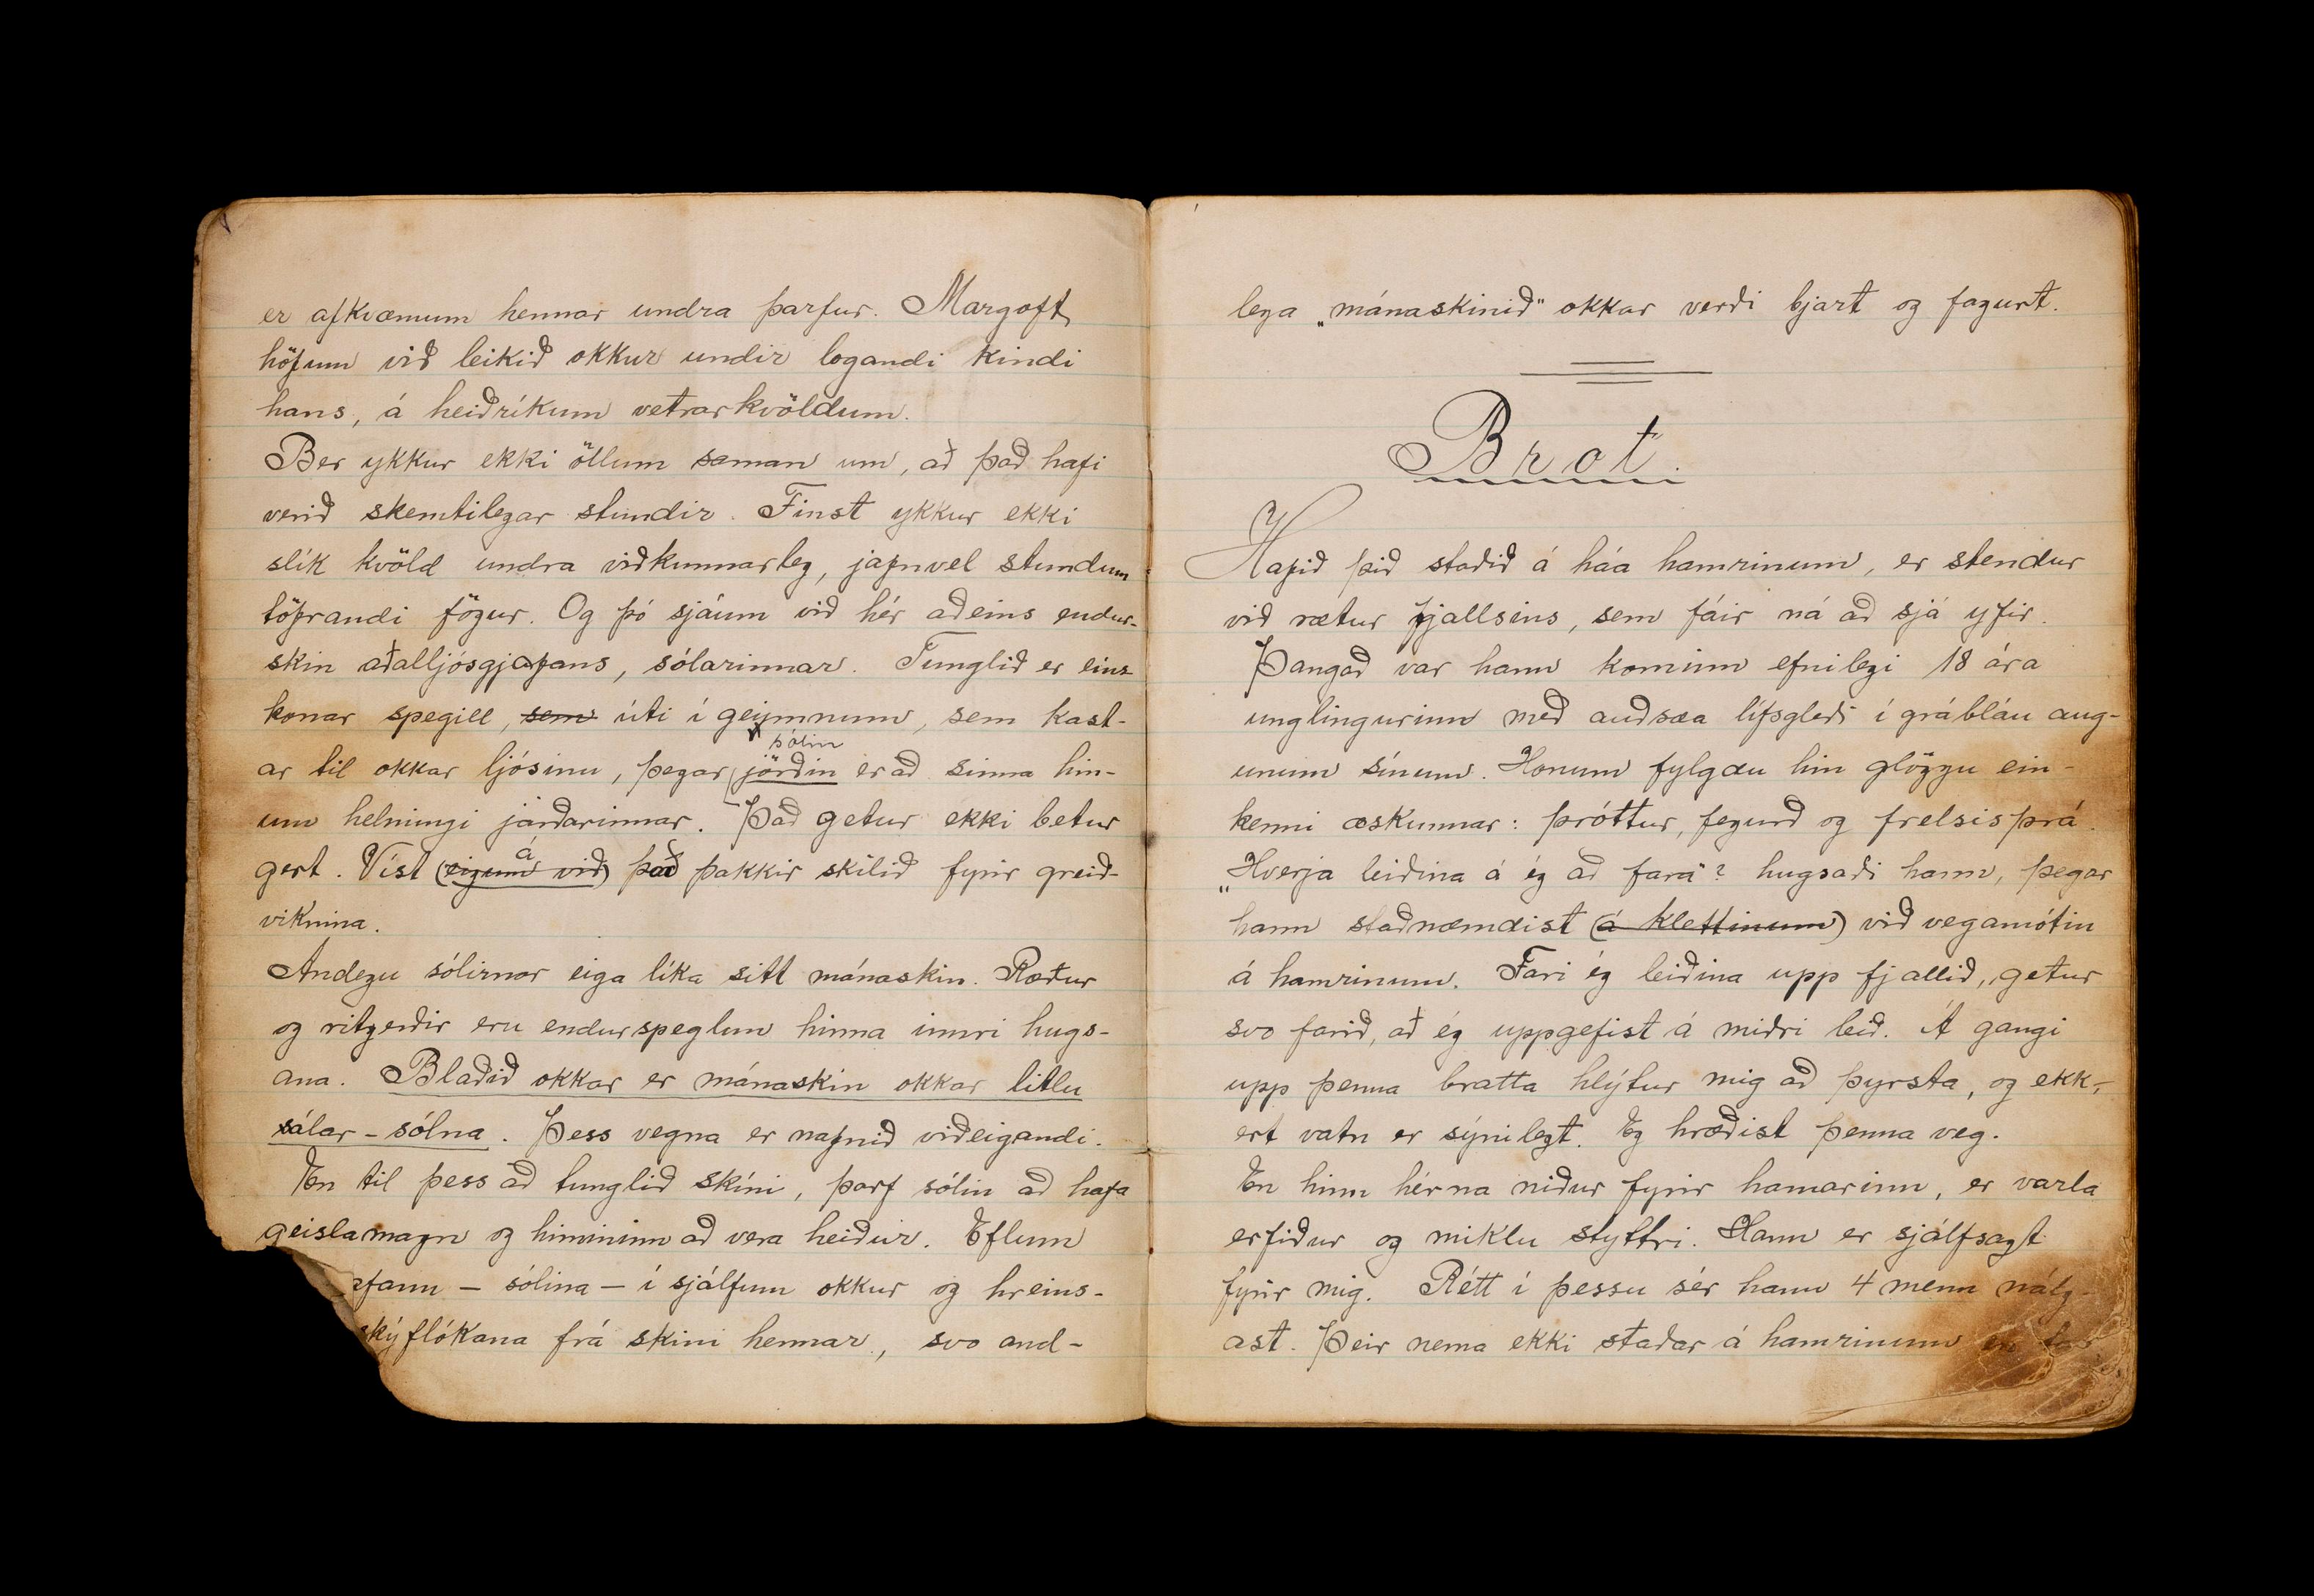 er afkvæmum hennar undra þarfur. Margoft
höfum við leikið okkur undir logandi kindi
hans, á heiðríkum vetrarkvöldum.
Ber ykkur ekki öllum saman um, að það hafi
verið skemtilegar stundir. Finst ykkur ekki
slík kvöld undra viðkunnarleg, jafnvel stundum
töfrandi fögur. Og þó sjáum við hér aðeins endur-
skin aðalljósgjafans, sólarinnar. Tunglið er eins-
konar spegill, sem úti í geimnum, sem kast-
sólin
ar til okkar ljósinu, þegar (jörðin er að sinna hin-
um helningi jarðarinnar. Það getur ekki betur
á
gert. Víst (eigum við) það þakkir skilið fyrir greið-
viknina.
Andegu sólirnar eiga líka sitt mánaskin. Ræður
og ritgerðir eru endurspeglun hinna innri hugs-
ana. Blaðið okkar er mánaskin okkar litlu
sálar-sólna. Þess vegna er nafnið viðeigandi.
En til þess að tunglið skíni, þarf sólin að hafa
geislamagn og himininn að vera heiður. Eflum
afann - sólina - í sjálfum okkur og hreins-
skýflókana frá skini hennar, svo and-
lega „mánaskinið" okkar verði bjart og fagurt.
Brot.
Hafið þið staðið á háa hamrinum, er stendur
við rætur fjallsins, sem fáir ná að sjá yfir.
Þangað var hann kominn efnilegi 18 ára
unglingurinn með auðsæa lífsgleði í grábláu aug-
unum sínum. Honum fylgdu hin glöggu ein-
kenni æskunnar: þróttur, fegurð og frelsisþrá.
„Hverja leiðina á ég að fara"? hugsaði hann, þegar
hann staðnæmdist (á klettinum) við vegamótin
á hamrinum. Fari ég leiðina upp fjallið, getur
svo farið, að ég uppgefist á miðri leið. Á gangi
upp þenna bratta hlýtur mig að þyrsta, og ekk-
ert vatn er sýnilegt. Eg hræðist þenna veg.
En hinn hérna niður fyrir hamarinn, er varla
erfiður og miklu styttri. Hann er sjálfsagt
fyrir mig. Rétt í þessu sér hann 4 menn nálg-
ast. Þeir nema ekki staðar á hamrinum en